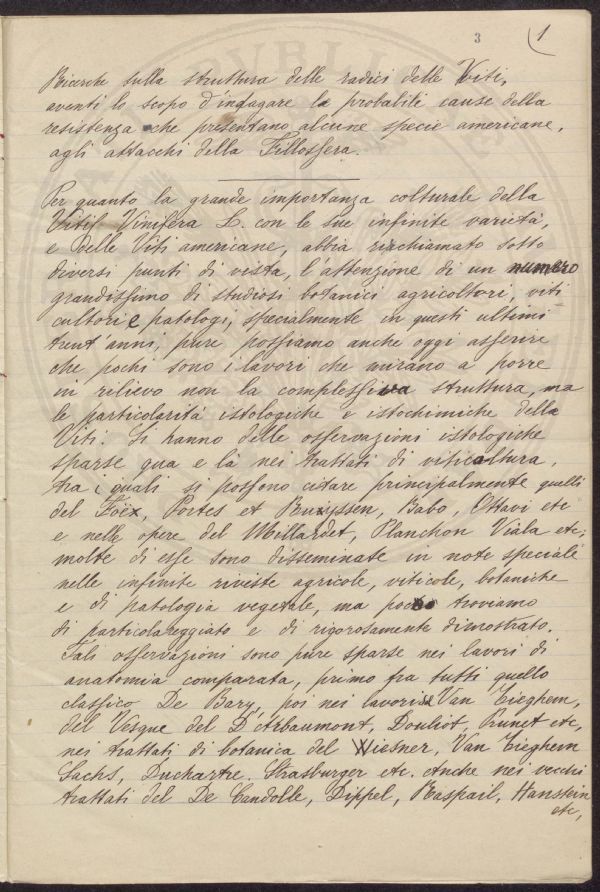 3
1
Ricerche sulla struttura delle radici delle Viti,
aventi lo scopo d'indagare le probabili cause della
resistenza che presentano alcune specie americane,
agli attacchi della Fillossera.
Per quanto la grande importanza colturale della
Vitis Vinifera L. con le sue infinite varietà,
e delle Viti americane, abbia richiamato sotto
diversi punti di vista, l'attenzione di un numero
grandissimo di studiosi botanici agricoltori, viti
cultori e patologi, specialmente in questi ultimi
trent'anni, pure possiamo anche oggi asserire
che pochi sono i lavori che mirano a porre
in rilievo non la complessiva struttura, ma
le particolarità istologiche e istochimiche della
Viti. Si hanno delle osservazioni istologiche
sparse qua e là nei trattati di viticoltura,
tra i quali si possono citare principalmente quelli
del Foëx, Portes et Ruyssen, Babo, Ottavi etc
e nelle opere del Millardet, Planchon Viala etc,
molte di esse sono disseminate in note speciali
nelle infinite riviste agricole, viticole, botaniche
e di patologia vegetale, ma poco troviamo
di particolareggiato e di rigorosamente dimostrato.
Tali osservazioni sono pure sparse nei lavori di
anatomia comparata, primo fra tutti, quello
classico De Bary, poi nei lavori Van Tieghem,
del Vesque del D'Arbaumont, Douliot, Prunet etc,
nei trattati di botanica del Wiesner, Van Tieghem
Sachs, Duchartre. Strasburger etc. Anche nei vecchi
trattati del De Candolle, Dippel, Raspail, Hanstein
etc,